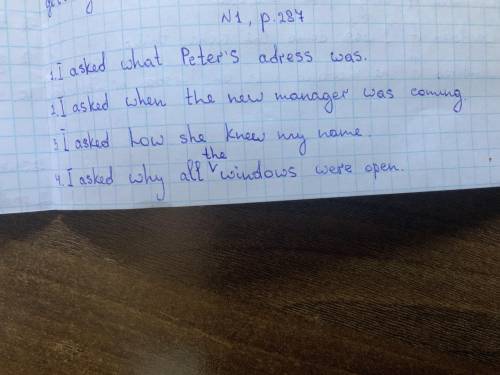 N1, p.287
1. I asked what Peter's adress was.
2. I asked when the new manager was coming.
3 I asked how she knew my name.
4. I asked why all the windows were open.